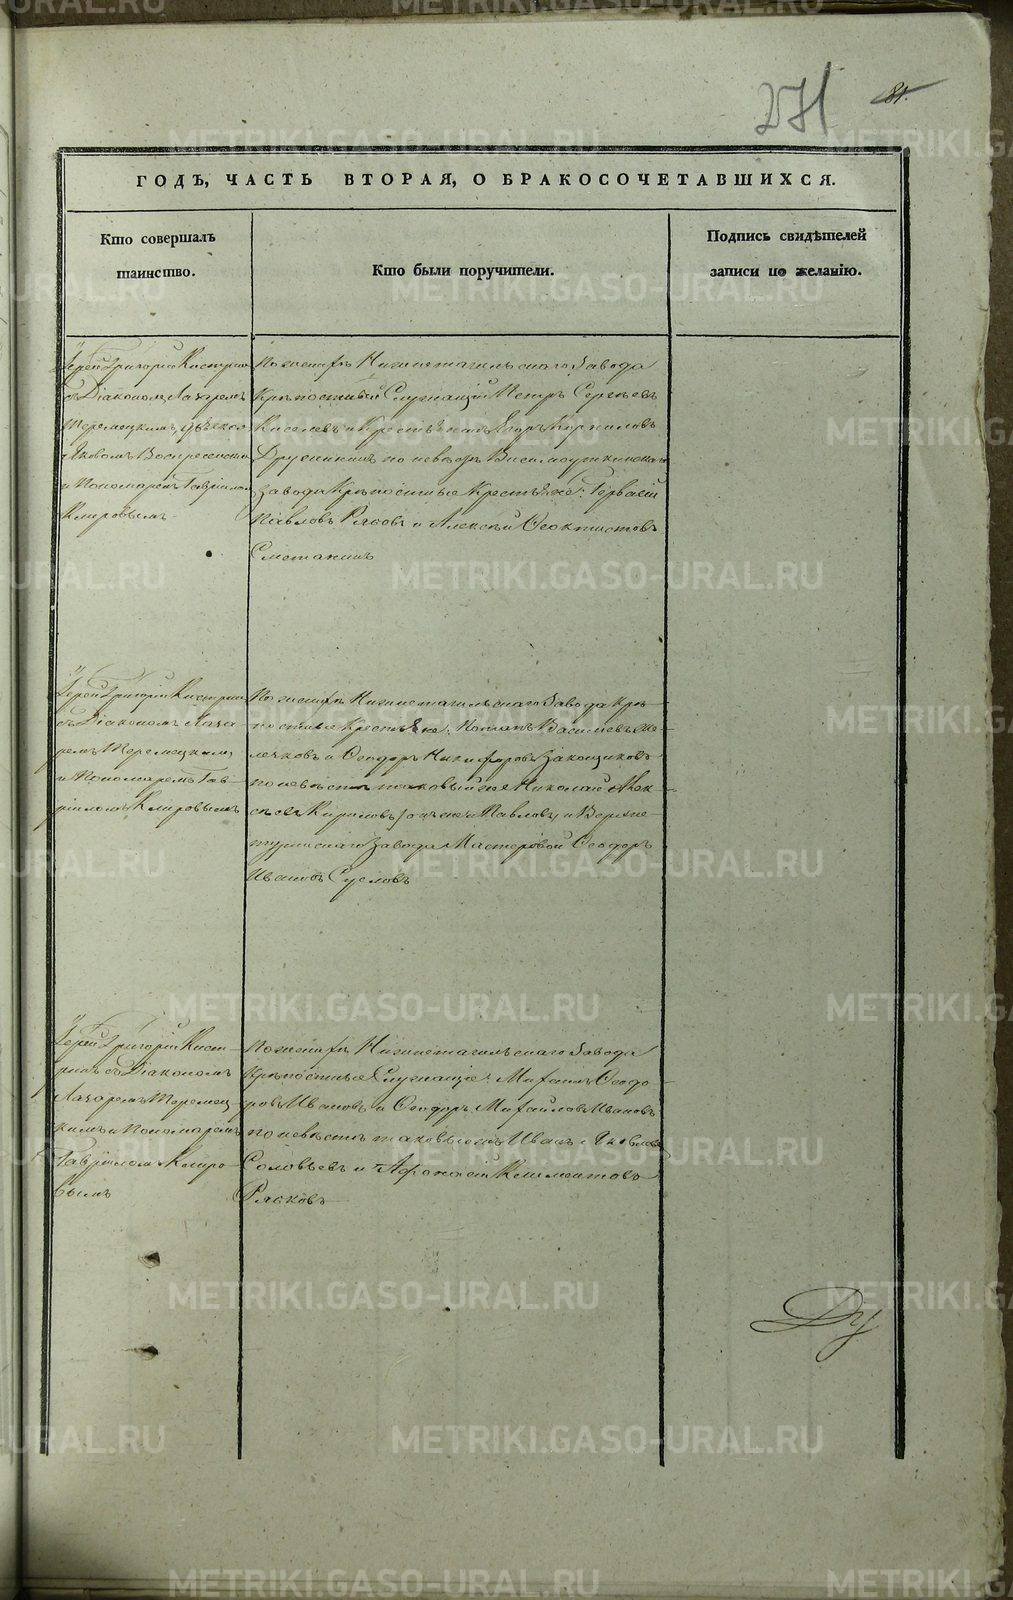 271
81.
ГОДЪ, ЧАСТЬ ВТОРАЯ, О БРАКОСОЧЕТАВШИХСЯ.
Кто совершалъ
таинство.
Кто были поручители.
Подпись свидѣтелей
записи по желанію.
Іерей Григорій
съ Діакономъ Лазаремъ
Теремецкимъ,
Яковомъ Воскресенскимъ
и Пономаремъ Гавріиломъ
Кпировымъ
По женихѣ Нижнетагильскаго Завода
Крѣпостные Служащій Петръ Сергѣевъ
Киселевъ и Крестьянинъ Егоръ Корниловъ
по невѣстѣ Висимоуткинскаго
завода Крѣпостные Крестьяне: Гервасій
Павловъ Рясовъ и Алексѣй Ѳеоктистовъ
Сметанинъ
Іерей Григорій
съ Діакономъ Лаза-
ремъ Теремецкимъ
и Пономаремъ Гав-
ріиломъ Кпировымъ
По женихѣ Нижнетагильскаго Завода Крѣ-
постные Крестьяне: Василевъ
и Ѳеодоръ Никифоровъ
по невѣстѣ таковый же Николай Алек-
сѣевъ Кириловъ и Верхне-
туринскаго Завода Мастеровой Ѳеодоръ
Ивановъ Сусловъ
Іерей Григорій
съ Діакономъ
Лазаремъ Теремец-
кимъ и Пономаремъ
Гавріиломъ Кпиро-
вымъ
По женихѣ Нижнетагильскаго Завода
Крѣпостные Служащіе: Михаилъ Ѳеодо-
ровъ Ивановъ и Ѳеодоръ Михайловъ Ивановъ
по невѣстѣ таковые жъ Иванъ Яковлевъ
Соловьевъ и Афонасій Климентовъ
Рясковъ
METRIKI.GASO-URAL.RU